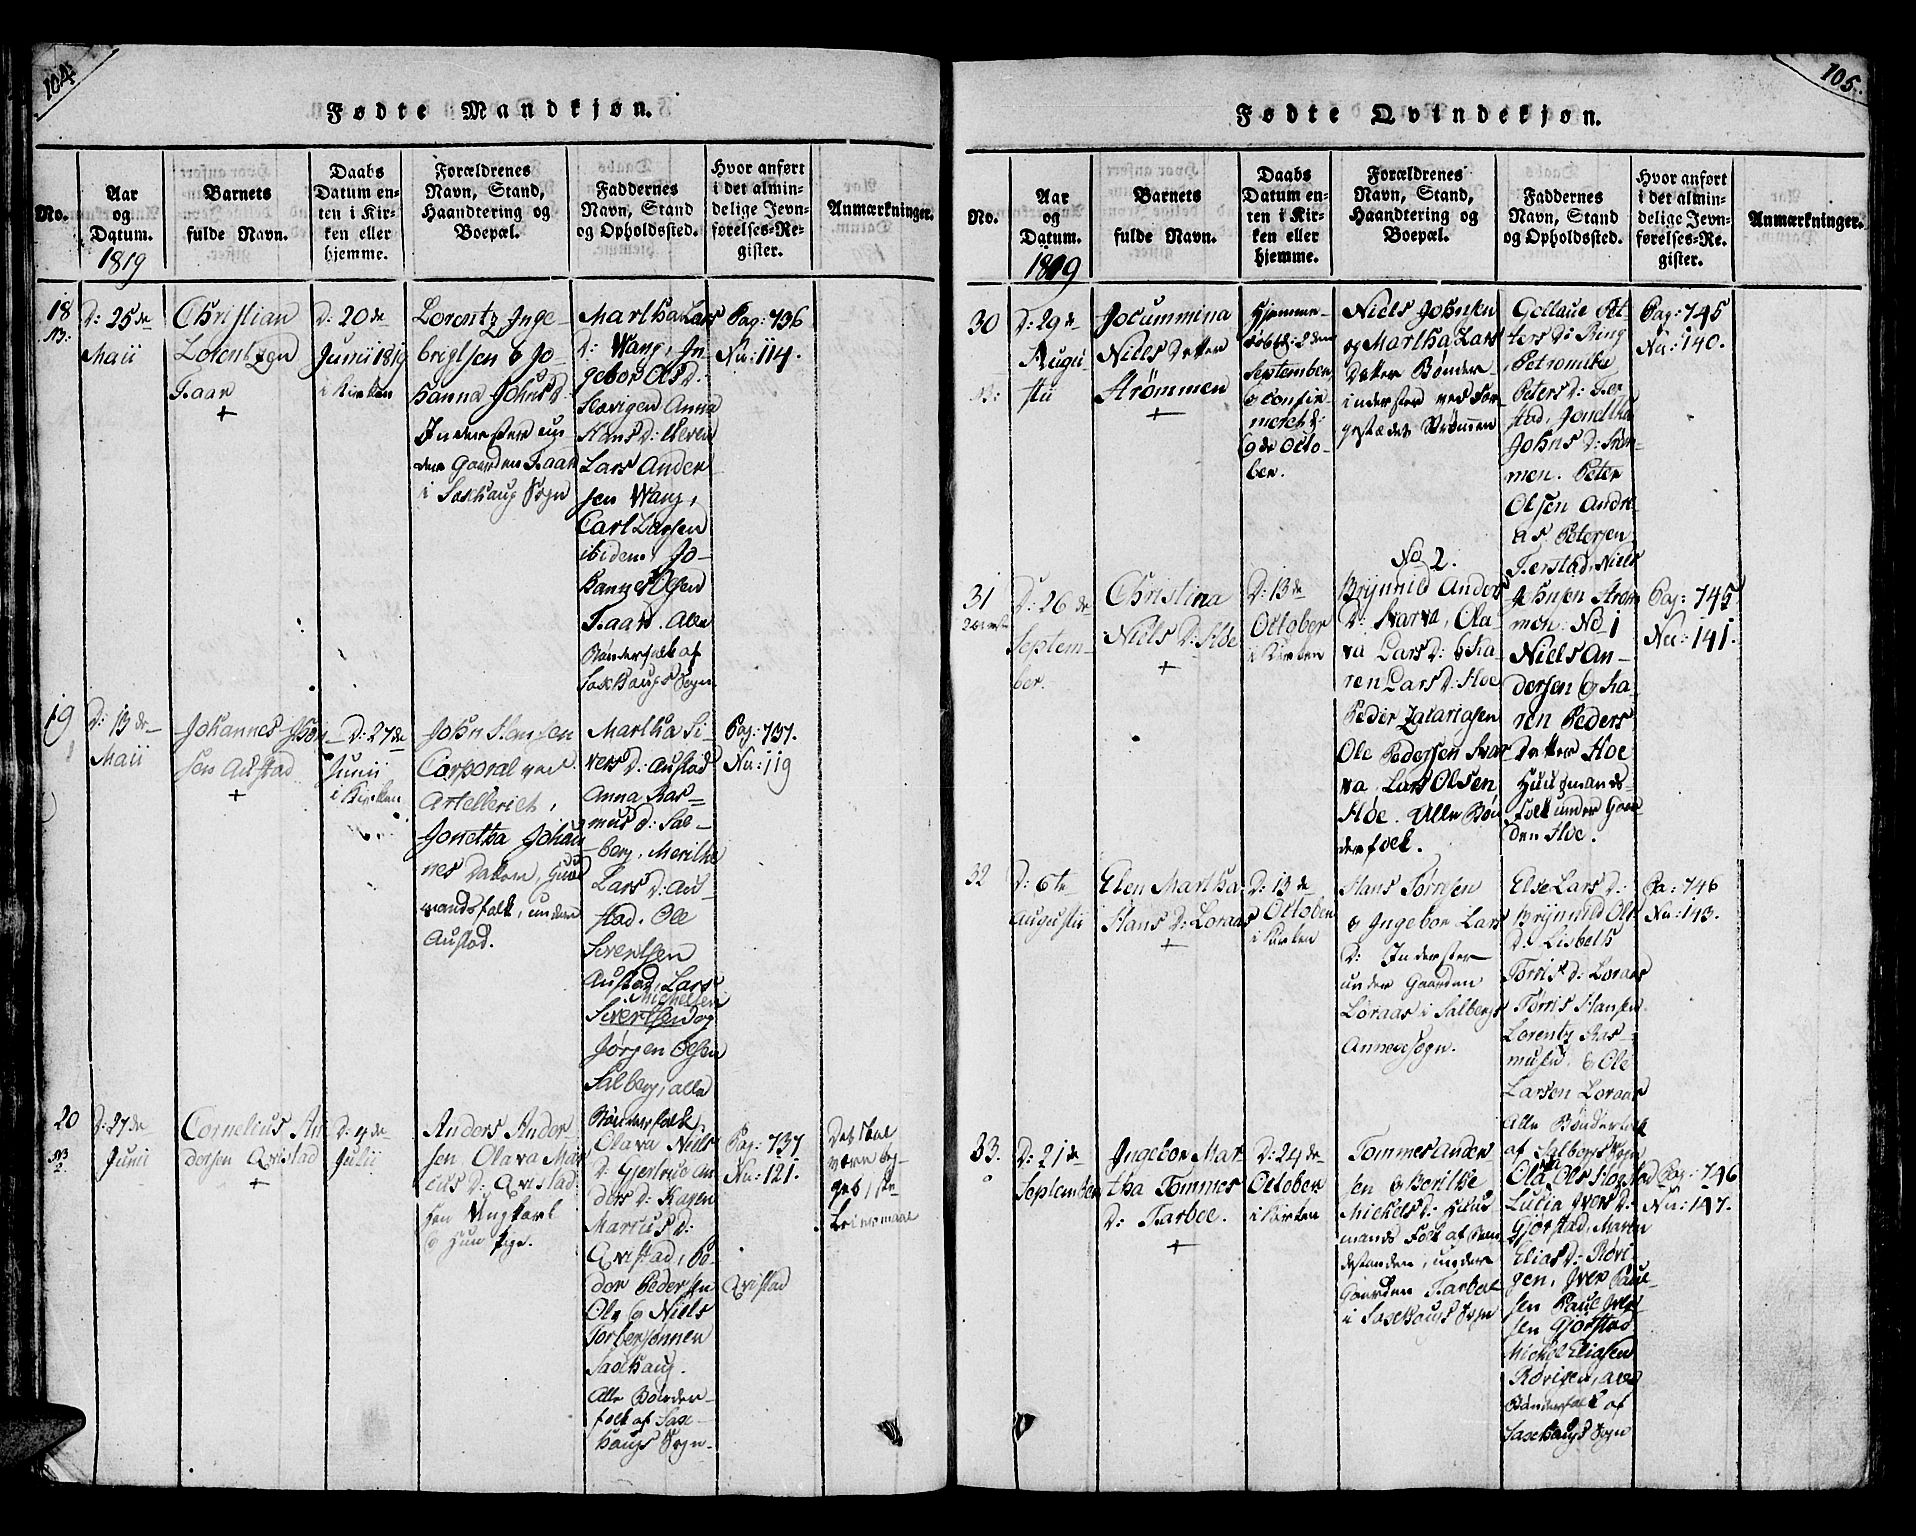 104.
Fødte Mandkjøn.
No.
Aar
og
Datum.
1819
Barnets
fulde Navn.
Daabs
Datum en-
ten i Kir-
ken eller
hjemme.
Forældrenes
Navn, Stand,
Haandtering og
Boepæl.
Faddernes
Navn, Stand
og Opholdssted.
Hvor anført
i det almin-
delige Jevn-
førelses-Re-
gister.
Anmærkninger.
18
D: 25de
Maii
Christian
Lorentzen
Faar
+
D: 20de
Junii 1819
i Kirken
Lorentz Inge-
brigtsen & Jo-
hanna Johns D
Inderster un-
der Gaarden Faar
i Saxhaug Sogn
Martha Lars
D: Wang, In-
gebor Ols D:
Anna
Hans D:
Lars Ander
sen Wang,
Carl Larsen
ibidem, Jo-
hannes Olsen
Faar. Alle
Bønderfolk af
Saxhaugs Sogn.
Pag: 736
Nu: 114.
19
D: 13de
Maii
Johannes John
sen Austad
+
D: 27de
Junii
i Kirken
John Hansen
Corporal ved
Artelleriet,
Jonetha Johan
nes Datter, Huus
mandsfolk, under
Austad.
Martha Si-
vers D: Austad
Anna Ras-
mus D: Sal-
berg, Merethe
Lars D: Au-
stad. Ole
Sivertsen
Austad, Lars
Michelsen
Sivertsen og
Jørgen Olsen
Salberg, alle
Bønderfolk.
Pag: 737.
Nu: 119
20
D: 27de
Junii
Cornelius An
dersen Qvistad
+
D: 4de
Julii
Anders Ander-
sen, Olava Mar
cus D: Qvistad
han Ungkarl
& hun Pige.
Olava Niels
D: Gjertrud An
ders D:
Marcus D:
Qvistad, Pe-
der Pedersen
Ole & Niels
Saxhaug.
Alle Bønder-
folk af Sax-
haugs Sogn.
Pag: 737
Nu: 121.
Qvistad
Det skal
være beg-
ges 1ste
Leiermaal
105.
Fødte Qvindekjøn.
No.
Aar
og
Datum.
1819
Barnets
fulde Navn.
Daabs
Datum en-
ten i Kir-
ken eller
hjemme.
Forældrenes
Navn, Stand,
Haandtering og
Boepæl.
Faddernes
Navn, Stand
og Opholdssted.
Hvor anført
i det almin-
delige Jevn-
førelses-Re-
gister.
Anmærkninger.
30
D: 29de
Augu
sti
Jocummina
Niels Datter
Strømmen
+
Hjemme-
døbt d: 2den
September,
& confir
meret d:
9de Octo-
ber.
Niels Johnsen
og Martha Lars
Datter Bønder-
inderster ved For-
gestædet Strømmen
ters D:
Petromike
Peters D: Fer
stad, Jonetha
Johns D: Strøm
men. Peter
Olsen Andre-
as Petersen
Ferstad, Niels
Johnsen Strøm
men. No 1
Pag: 745
Nu: 140.
31
D: 26de
Septem-
ber.
Christina
Niels D: Hoe
+
D: 13de
October
i Kirken
No 2.
Brynnild Anders
D: Svarva, Ola
va Lars D: & Ka-
ren Lars D: Hoe
Peder Zakariasen
Ole Pedersen Svar
va, Lars Olsen
Hoe. Alle Bøn
derfolk.
Niels An-
dersen & Ka-
ren Peders
Datter Hoe
Huusmands-
folk under Gaar
den Hoe.
Pag: 745
Nu: 141.
32
D: 6te
Augustii
Elen Martha
Hans D: Loraas
+
D: 13de
October
i Kirken
Hans Tørrisen
& Ingebor Lars
D: Inderster
under Gaarden
Løraas i Salbergs
Annexsogn.
Else Lars D:
Brynnild Ols
D: Lisbeth
Torris D: Loraas
Torris Hansen
Lorentz Ras-
musen & Ole
Larsen Loraas
Alle Bønderfolk
af Salbergs Sogn
Pa: 746
Nu: 143.
33.
D: 21de
September
Ingebor Mar
tha Tommes
D: Tarbee.
+
D: 24de
October
i Kirken
Tommes Ander
sen & Berithe
Mickels D: Huus
mands Folk af Bon
destanden, under
Gaarden Tarbee
i Saxhaugs Sogn
Lucia Ivers D:
Gjørstad, Maren
Elias D: Røvi-
gen, Iver Paul-
sen Paul Iver
sen Gjørstad
Mickel Eliasen
Røvigen, alle
Bønderfolk af
Saxhaugs Sogn
Pag: 746
Nu: 147.